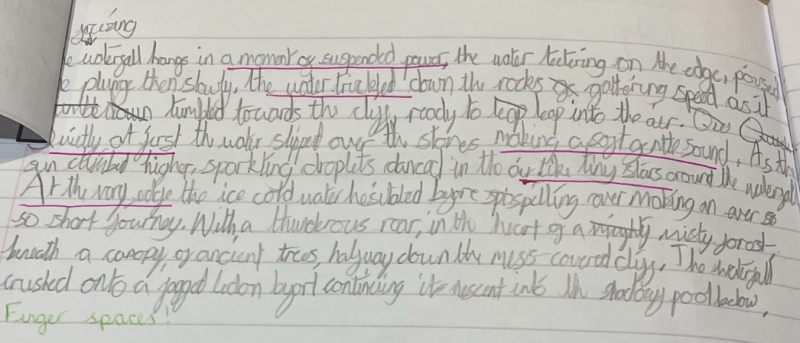 waterfall hangs in a moment of suspended power, the water teetering on the edge, poised
plunge then slowly, the water trickled down the rocks gathering speed as it
tumbled towards the cliff, ready to leap into the air.
Quietly at first the water slipped over the stones making a soft gentle sound. As the
sun climbed higher, sparkling droplets danced in the air like tiny stars around the waterfall
At the very edge the ice cold water hesitated before spilling over making an ever so
so short journey. With a thunderous roar, in the heart of a misty forest
beneath a canopy of ancient trees, halfway down the moss covered cliff. The waterfall
crusked onto a jagged continuing its descent into the shadowy pool below.
Finger spaces!